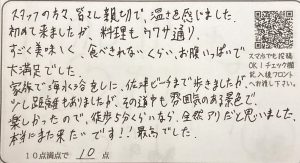 スタッフの方々、皆さん親切で、温さを感じました。
初めて来ましたが、料理もクワサ通り、
すごく美味しく、食べきれないくらい、お腹いっぱいで
大満足でした。
家族で海水浴をしに、佐津ビーチまで歩きましたが、
少し距離もありましたが、その道中も雰囲気のある景色で、
楽しかったので、徒歩5分くらいなら、全然アリだと思いました。
本当にまた来たいです!!最高でした。
10点満点で 10 点
スマホでも投稿
OK!チェック欄
記入後フロント
へお渡し下さい。